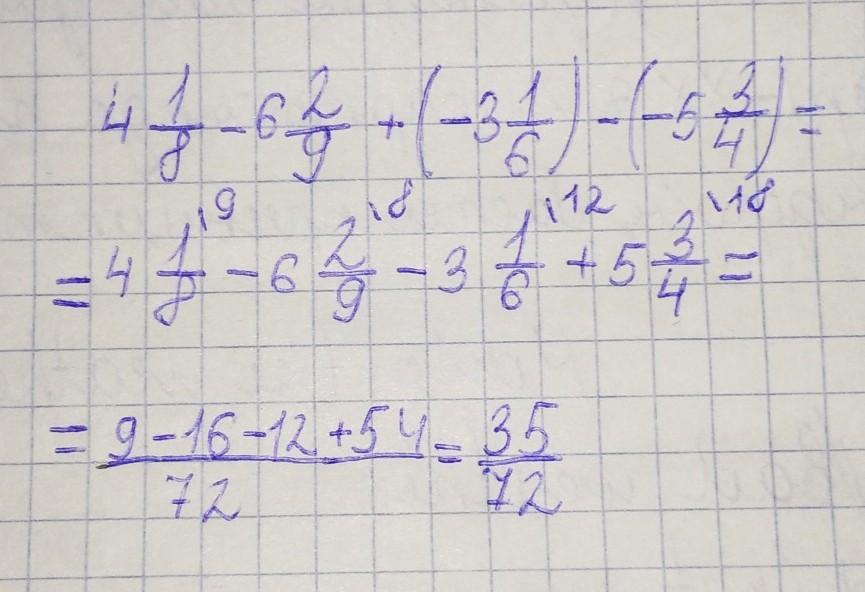 4 1/8 - 6 2/9 + (-3 1/6) - (-5 3/4) =
= 4 1/8 \9 - 6 2/9 \8 - 3 1/6 \12 + 5 3/4 \18 =
= (9 - 16 - 12 + 54)/72 = 35/72